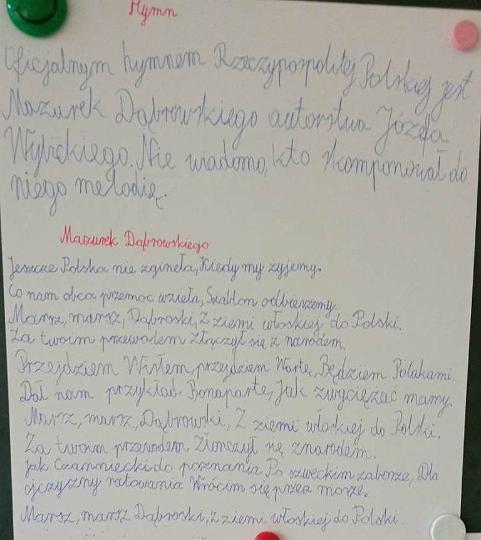 Hymn
Oficjalnym hymnem Rzeczypospolitej Polskiej jest
Mazurek Dąbrowskiego autorstwa Józefa
Wybickiego. Nie wiadomo, kto skomponował do
niego melodię.
Mazurek Dąbrowskiego
Jeszcze Polska nie zginęła, Kiedy my żyjemy.
Co nam obca przemoc wzięła, Szablom odbierzemy.
Marsz, marsz, Dąbroski, Z ziemi włoskiej do Polski.
Za twoim przewodem Złączył się z narodem.
Przejdziem Wisłem, przejdziem Wartę, Będziem Polakami.
Dał nam przykład Bonaparte, Jak zwyciężać mamy.
Marsz, marsz, Dąbrowski, Z ziemi włoskiej do Polski.
Za twoim przewodem Złonczył się znarodem.
Jak Czarniecki do poznania Po szweckim zaborze, Dla
ojczyzny ratowania Wrócim się przez morze.
Marsz, marsz Dąbroski, Z ziemi włoskiej do Polski.